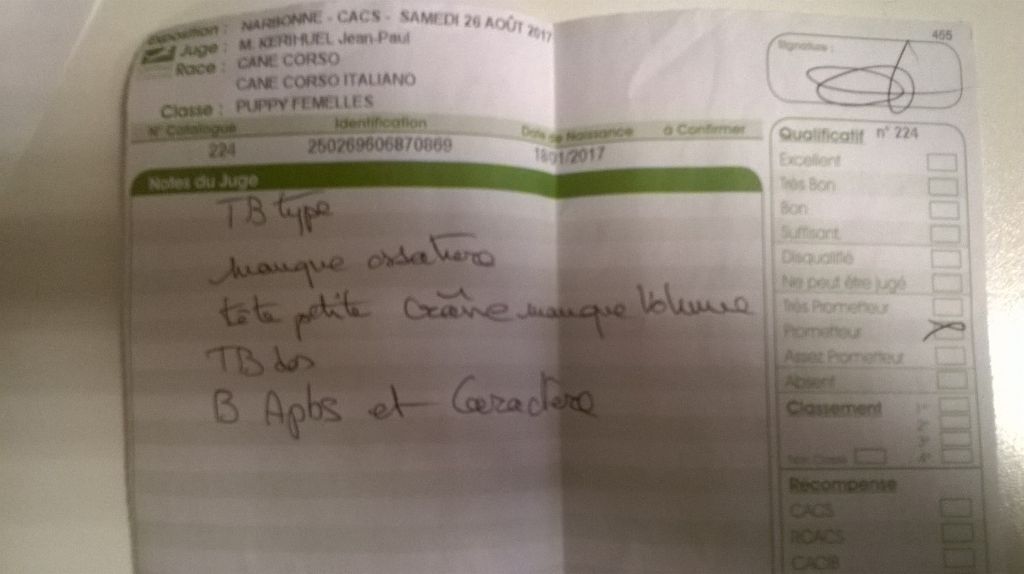 Exposition : NARBONNE - CACS - SAMEDI 26 AOÛT 2017
Juge : M. KERIHUEL Jean-Paul
Race : CANE CORSO
CANE CORSO ITALIANO
Classe : PUPPY FEMELLES
455
Signature :
N° Catalogue Identification Date de Naissance à Confirmer
224 250269606870869 18/01/2017
Notes du Juge
TB type
manque ossature
tête petite crâne manque Volume
TB dos
B Aplbs et Caractère
Qualificatif n° 224
Excellent
Très Bon
Bon
Suffisant
Disqualifié
Ne peut être jugé
Très Prometteur
Prometteur
Assez Prometteur
Absent
Classement 1er
2e
3e
Non Classé 4e
Récompense
CACS
RCACS
CACIB